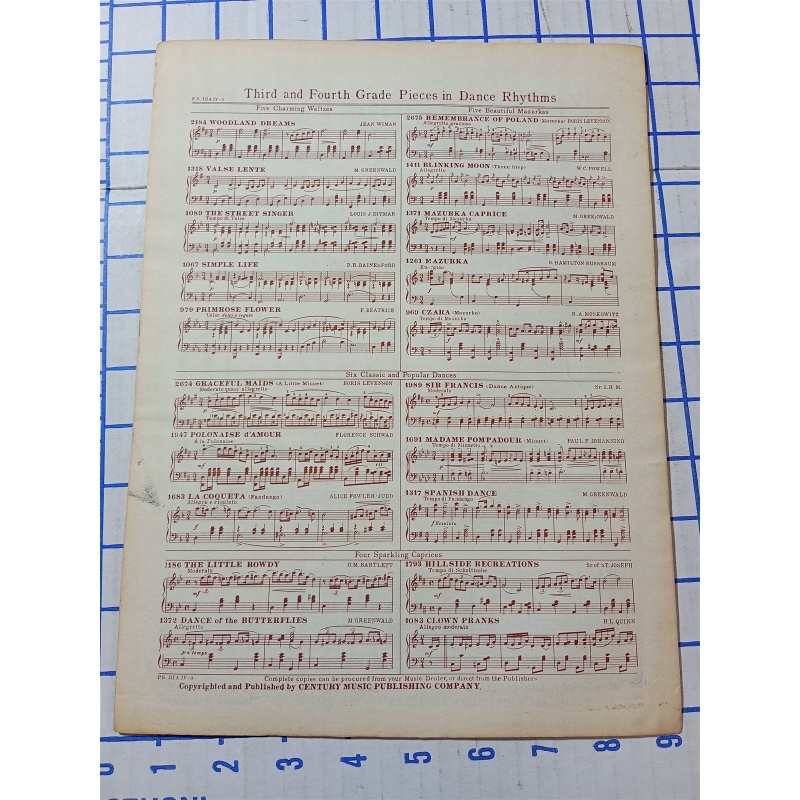 P.S. III & IV-3
Third and Fourth Grade Pieces in Dance Rhythms
Five Charming Waltzes
2184 WOODLAND DREAMS JEAN WIMAN
p
1318 VALSE LENTE M. GREENWALD
p
1089 THE STREET SINGER LOUIS J. BITMAR
Tempo di Valse
1067 SIMPLE LIFE
979 PRIMROSE FLOWER P. BEATRICE
Five Beautiful Mazurkas
2675 REMEMBRANCE OF POLAND (Mazurka) BORIS LEVENSON
Allegretto grazioso
mf
1411 BLINKING MOON (Three Step) W.C. POWELL
Allegretto
1371 MAZURKA CAPRICE M. GREENWALD
Tempo di Mazurka
mf
1261 MAZURKA S. HAMILTON RUSSBAUM
Energico
969 CZARA (Mazurka) R.A. MOSKOWITZ
Tempo di Mazurka
Six Classic and Popular Dances
2674 GRACEFUL MAIDS (A Little Minuet) BORIS LEVENSON
Moderato quasi allegretto
1947 POLONAISE d'AMOUR FLORENCE SCHWAB
A la Polonaise
mf
1683 LA COQUETA (Fandango) ALICE FOWLER JUDD
Allegro e risoluto
1989 SIR FRANCIS (Dance Antique) Sr. I.H.M.
Moderato
mf
1691 MADAME POMPADOUR (Minuet) PAUL F. JOHANNING
Tempo di Minuetto
1317 SPANISH DANCE M. GREENWALD
Tempo di Fandango
Four Sparkling Caprices
2186 THE LITTLE ROWDY G.M. BARTLETT
Moderato
mf
1372 DANCE of the BUTTERFLIES M. GREENWALD
Allegretto
p a tempo
1793 HILLSIDE RECREATIONS Sr. of ST. JOSEPH
Tempo di Schottische
mf
1083 CLOWN PRANKS H.L. QUINN
Allegro moderato
mf
P.S. III & IV-3
Complete copies can be procured from your Music Dealer, or direct from the Publishers
Copyrighted and Published by CENTURY MUSIC PUBLISHING COMPANY.
0 1 2 3 4 5 6 7 8 9